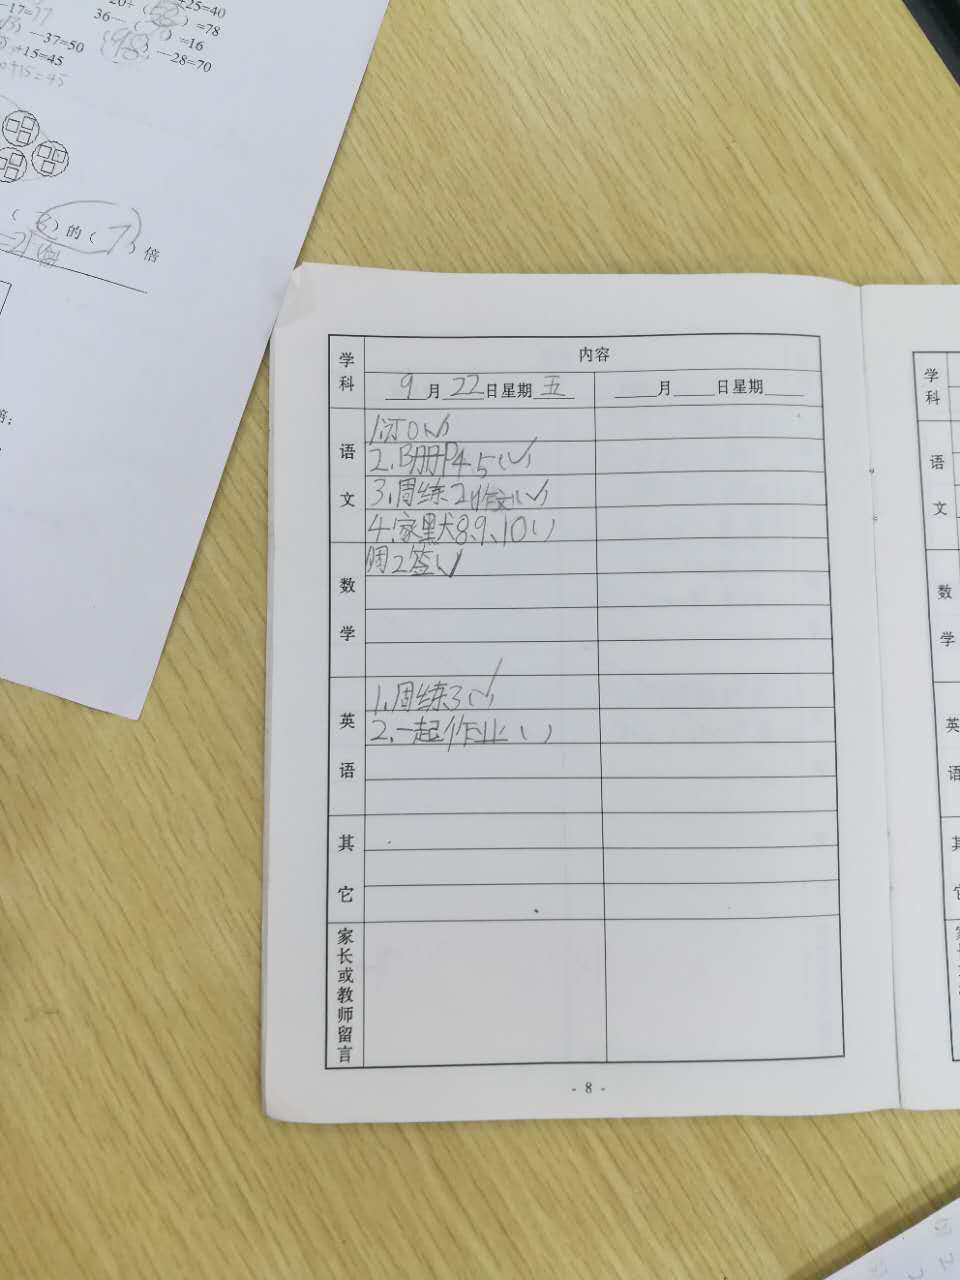 —17=37
+25=40
=78
36—(
)=16
—37=50
(98)—28=70
+15=45
+15=45
)的(7)倍
学科
内容
9月22日星期五
月 日星期
语文
1.订0(√)
2.B册P4.5(√)
3.周练2作文(√)
4.家黑犬8、9、10( )
数学
周2签(√)
英语
1.周练3(√)
2.一起作业( )
其它
家长或教师留言
- 8 -
学科
语文
数学
英语